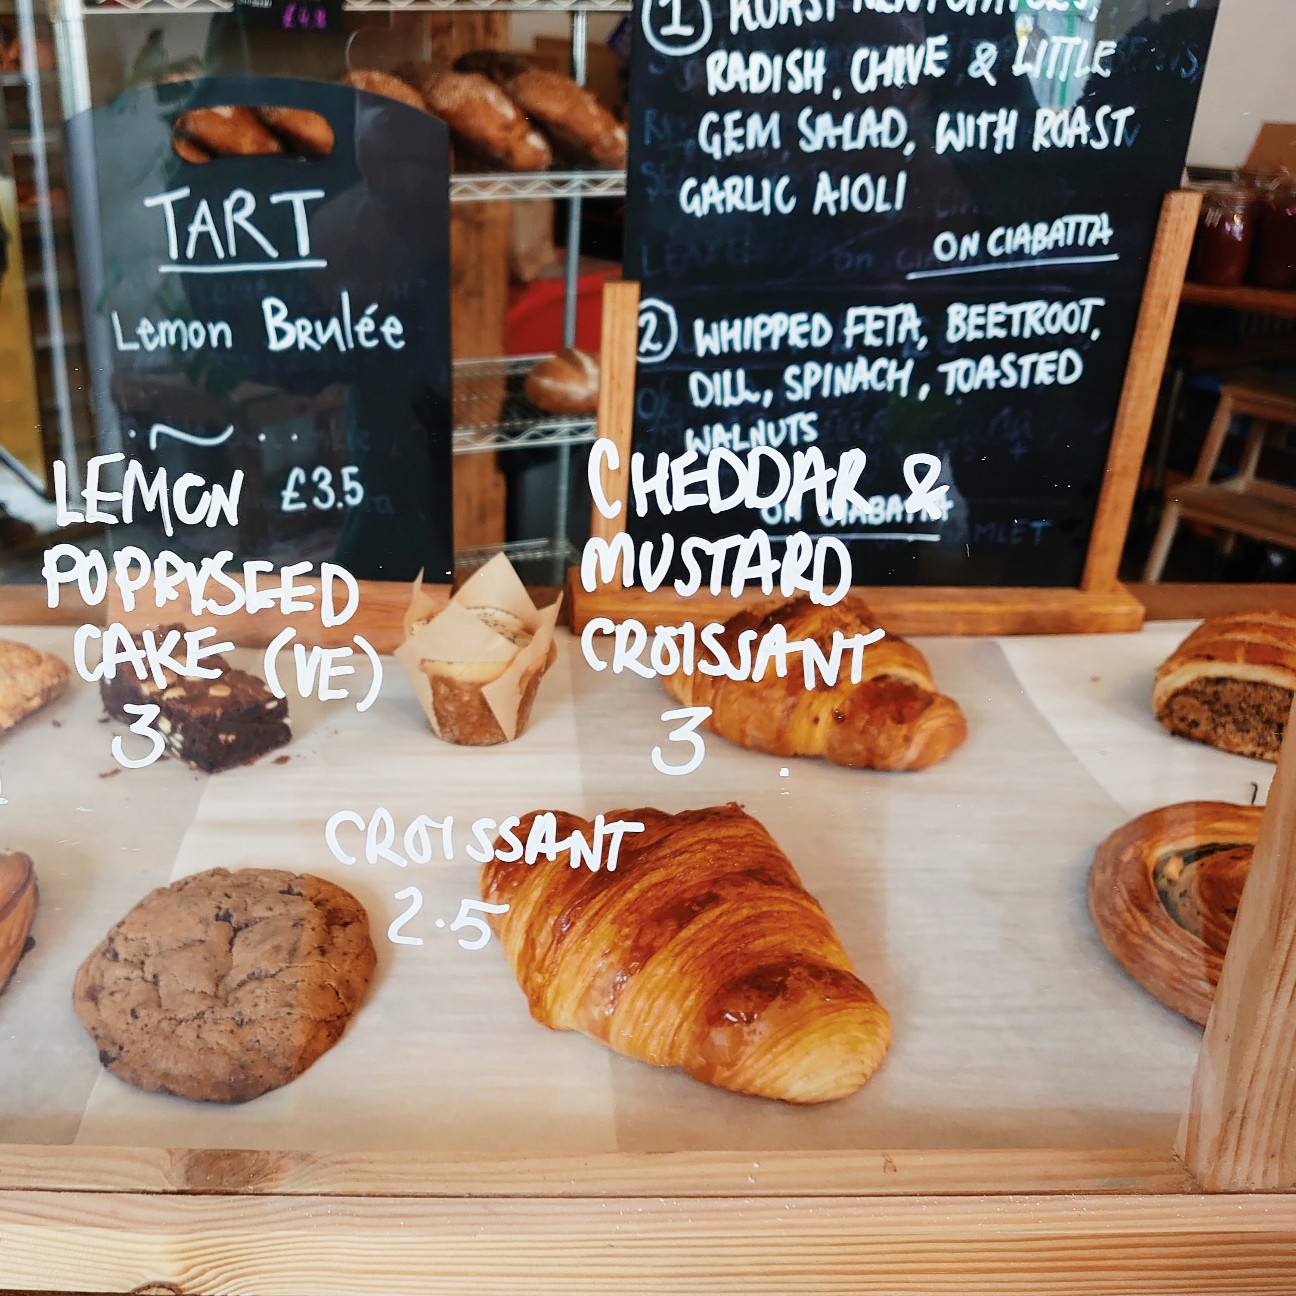 £4.8
TART
Lemon Brulée
£3.5
① ROAST
RADISH, CHIVE & LITTLE
GEM SALAD, WITH ROAST
GARLIC AIOLI
ON CIABATTA
② WHIPPED FETA, BEETROOT,
DILL, SPINACH, TOASTED
WALNUTS
ON CIABATTA
LEMON
POPPYSEED
CAKE (VE)
3
CHEDDAR &
MUSTARD
CROISSANT
3
CROISSANT
2.5